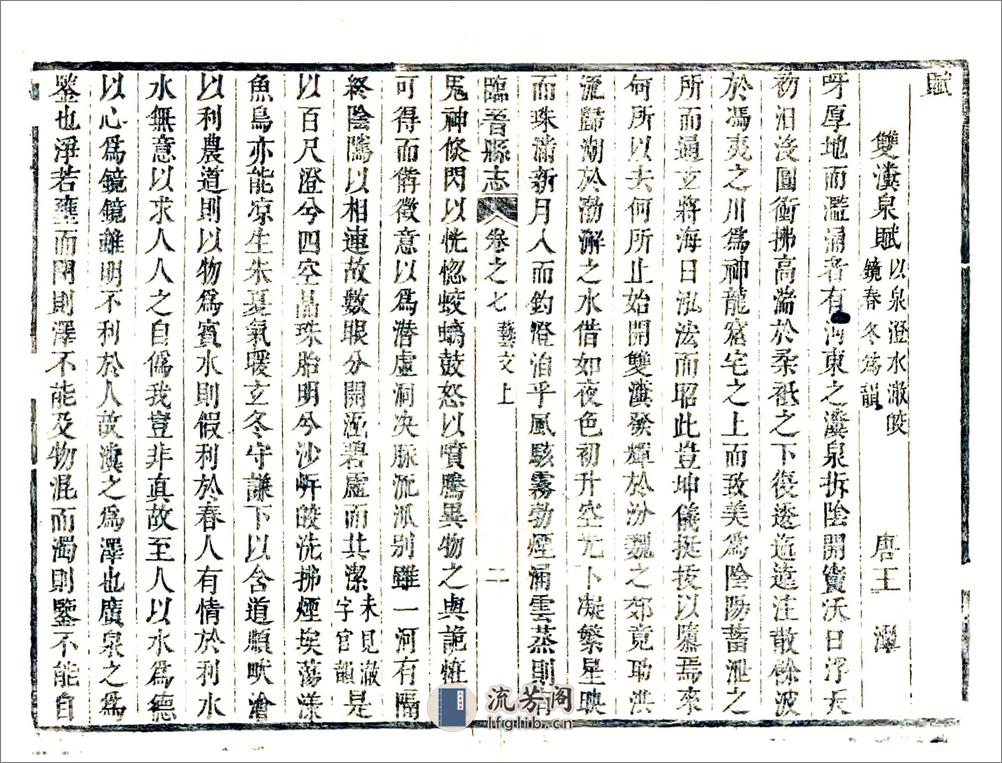 賦
雙瀵泉賦以泉澄水澈皎鏡春冬爲韻 唐王 濯
呀厚地而濫涌者有河東之瀵泉拆陰開竇沃日浮天
初汨沒圓衝拂高湍於柔祇之下復逶迤遠注散餘波
於馮夷之川爲神龍窟宅之上而致美爲陰陽蓄泄之
所而通玄將海日泓泫而昭此豈坤儀挺拔以隳焉來
何所以去何所止始開雙瀵發輝於汾魏之郊竟助洪
流歸湖於渤澥之水借如夜色初升空光下凝繁星映
而珠滿新月人而鈎澄泊乎風駭霧勃煙涌雲蒸則
臨晉縣志 卷之七藝文上 二
鬼神倏閃以恍惚蛟螭鼓怒以噴騰異物之與詭怪
可得而備徵意以爲潜虛洞決脉流派别雖一河有隔
終陰隲以相連故數眼分開涵碧虛而其潔未見澈字官韻是
以百尺澄兮四空晶珠胎明兮沙㟁皎洗拂煙埃蕩漾
魚鳥亦能凉生朱夏氣暖玄冬守謙下以含道順畎澮
以利農道則以物爲賓水則假利於春人有情於利水
水無意以求人人之自僞我豈非真故至人以水爲德
以心爲鏡鏡雖明不利於人故瀵之爲澤也廣泉之爲
鑒也淨若壅而閉則澤不能及物混而濁則鑒不能自
流芳阁
lfglib.cn